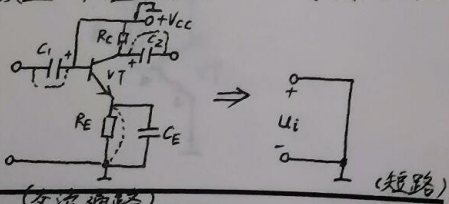 +Vcc
Rc
C₁
+
+
C₂
VT
RE
CE
⇒
+
ui
-
(短路)
(交流通路)